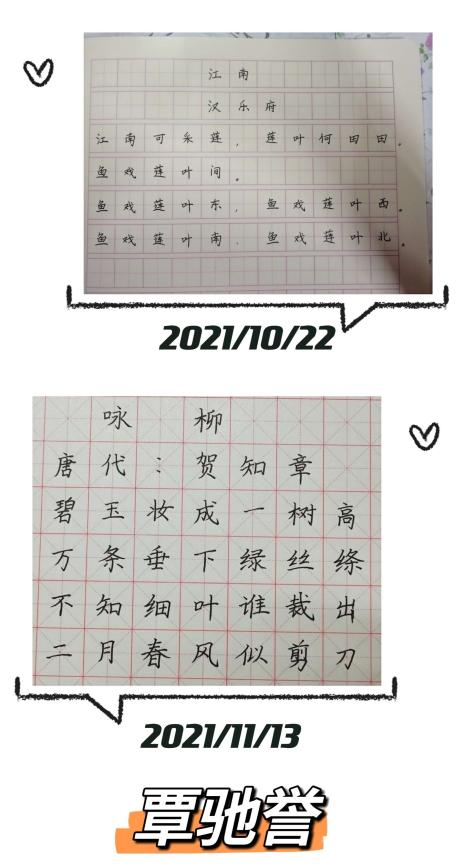 江南
汉乐府
江南可采莲，莲叶何田田。
鱼戏莲叶间。
鱼戏莲叶东，鱼戏莲叶西。
鱼戏莲叶南，鱼戏莲叶北。
2021/10/22
咏柳
唐代：贺知章
碧玉妆成一树高
万条垂下绿丝绦
不知细叶谁裁出
二月春风似剪刀
2021/11/13
覃驰誉